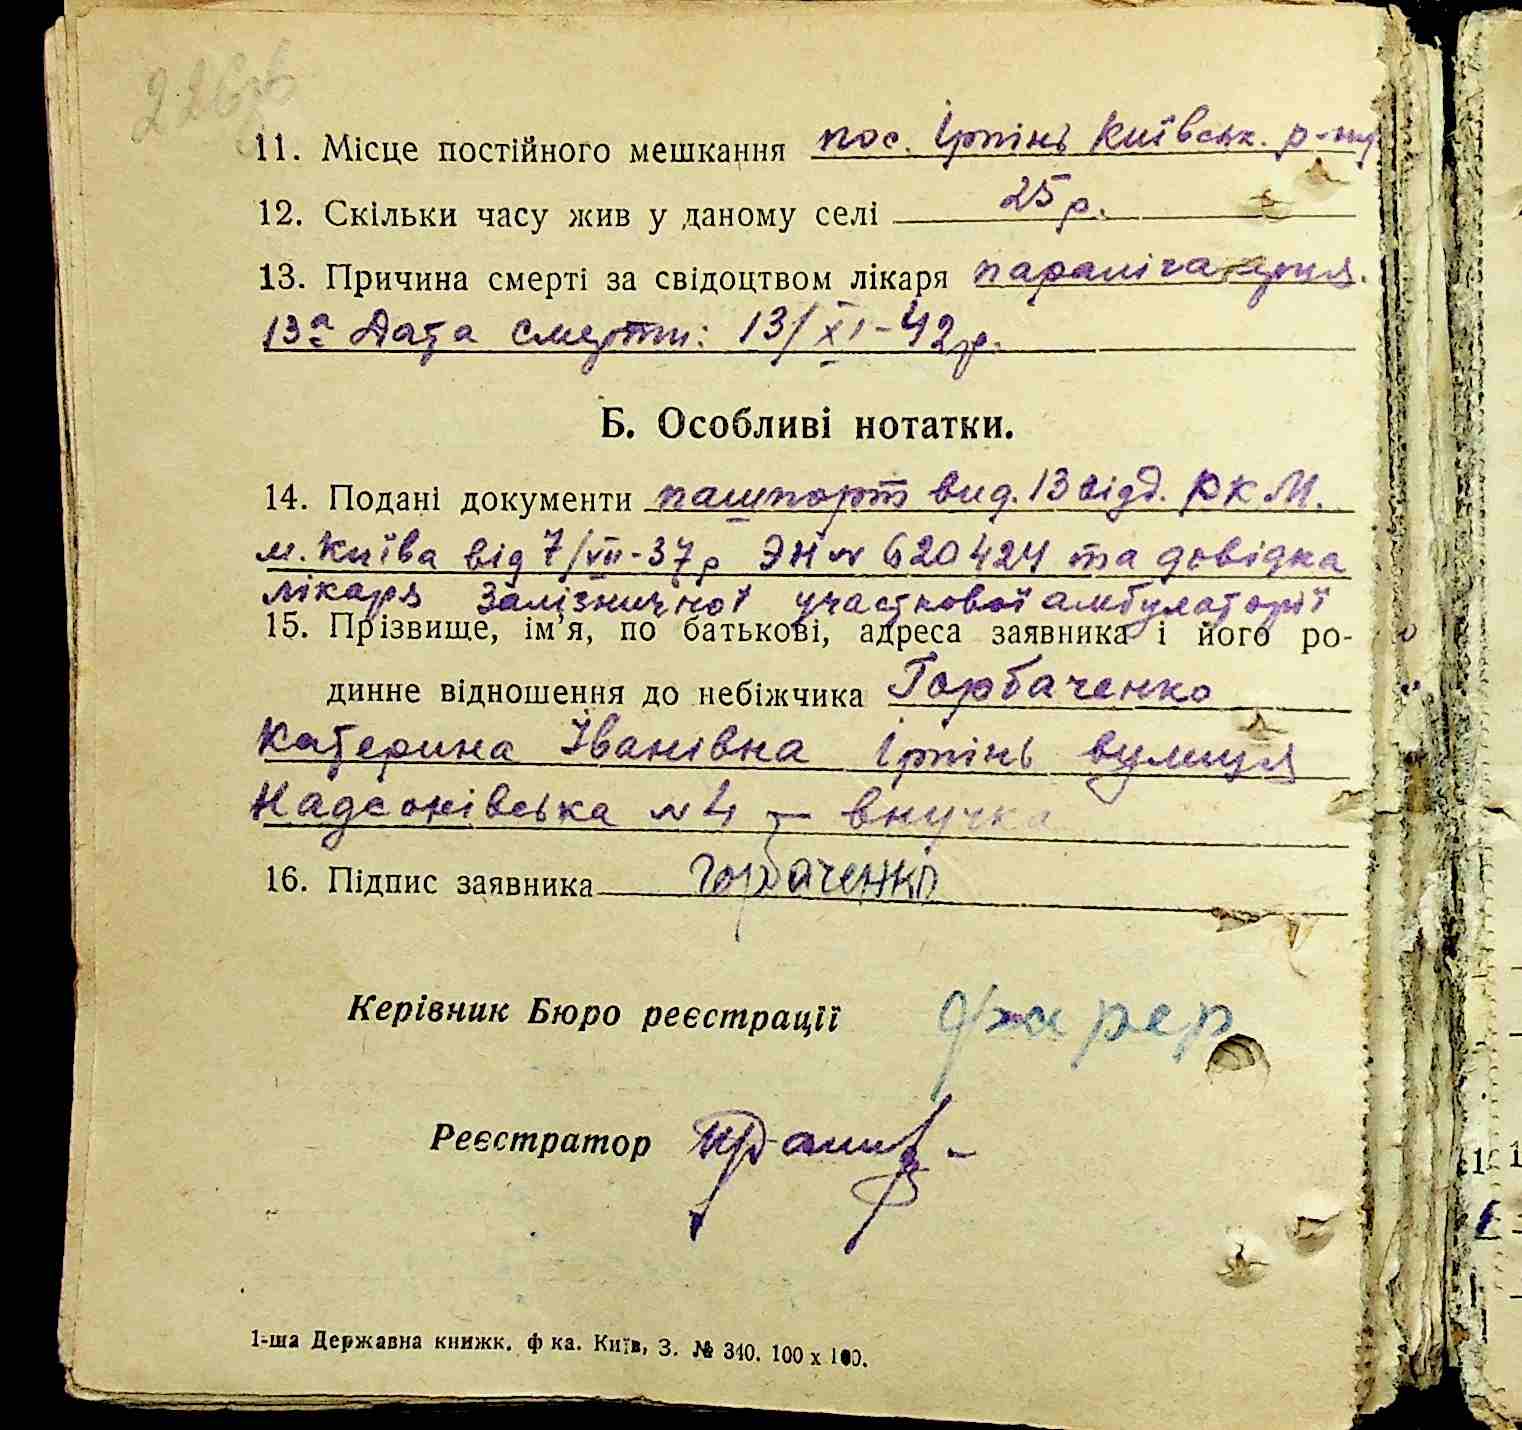 226зв
11. Місце постійного мешкання пос. Ірпінь Київськ. р-ну
12. Скільки часу жив у даному селі 25 р.
13. Причина смерті за свідоцтвом лікаря параліча серця.
13а Дата смерти: 13/XI-42 р.
Б. Особливі нотатки.
14. Подані документи пашпорт вид. 13 відд. РКМ.
м. Київа від 7/VII-37 р ЭН № 620424 та довідка
лікаря Залізничної участкової амбулаторії
15. Прізвище, ім’я, по батькові, адреса заявника і його ро-
динне відношення до небіжчика Горбаченко
Катерина Іванівна Ірпінь вулиця
Надсонівська № 4 – внучка
16. Підпис заявника Горбаченко
Керівник Бюро реєстрації
Реєстратор
1-ша Державна книжк. ф ка. Київ, З. № 340. 100 х 100.